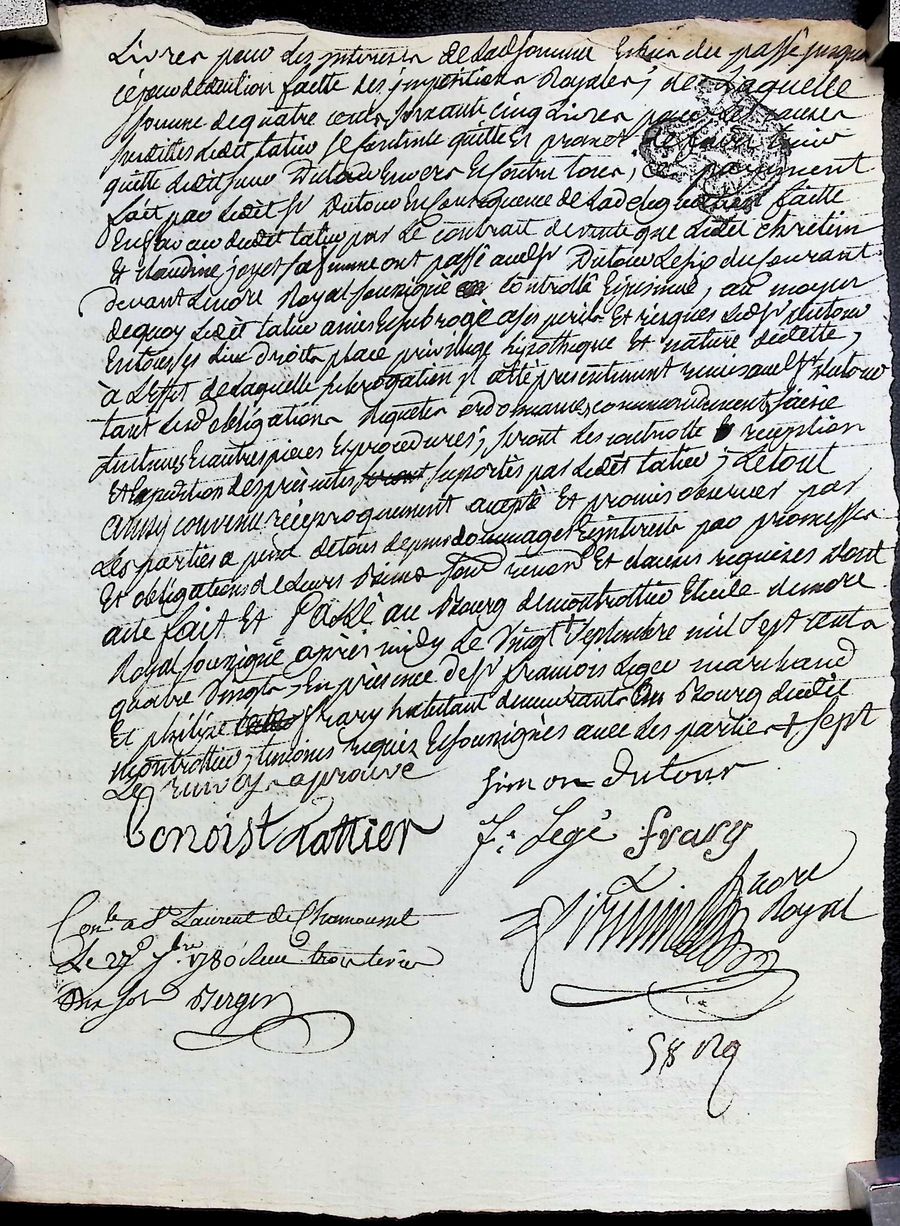 Livres pour les interests de lad somme Echus du passé jusqua
ce jour deduction faitte des impositions Royales; de Laquelle
somme de quatre cents soixante cinq Livres pour les causes
susdittes ledit tatier se contente quitte Et promet de faire tenir
quitte ledit sieur Dutour Envers Et contre tous, ce payement
fait par Ledit sr Dutour En consequence de La deleguation faitte
En faveur dudit tatier par Le contrait de vente que Ledit chretien
Et claudine joyet sa femme ont passé audt sr Dutour Le six du courant
devant Lenore Royal soussigné controllé Ejournué, au moyen
de quoy Ledit tatier a mis Et subrogé a ses perils Et risques Ledt sr dutour
En tous ses dix droits place privilege hipotheque Et nature de dette,
à L'effet de Laquelle subrogation il a été presentement remis audt sr Dutour
tant Lesd obligations requetes ordonnances, commandement, saisie
sentences Et autres pieces Et procedures; seront les controlle & reception
Et Expedition des presentes seront suportés par Ledit tatier; Le tout
ainsy convenu reciproquement accepté Et promis observer par
Les parties a peine de tous depens dommages Et interets par promesses
Et obligations de Leurs biens soud renon Et clauses requises Dont
acte fait Et Passé au Bourg de montrottier Etude de nore
Royal soussigné après midy Le Vingt septembre mil sept cents
quatre Vingts, En presence de sr françois Legee marchand
Et philipe frary habitant demeurants au Bourg dudit
montrottier, temoins requis Et soussignés avec Les parties + sept
Le renvoy aprouvé
Simon Dutour
Benoist Rattier
f. Legé frary
nore
Royal
Conlle a St Laurent de Chamousset
Le 27e 7bre 1780 Reçu trois livres
dix sols Berger
58 Rg